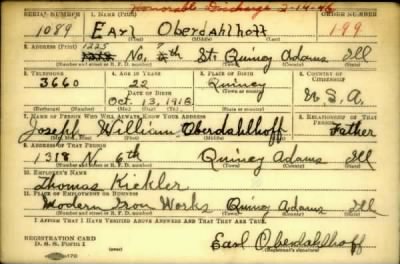 Honorable Discharge 2-14-46
SERIAL NUMBER 1. NAME (Print) ORDER NUMBER
1089 Earl Oberdahlhoff 199
(First) (Middle) (Last)
2. ADDRESS (Print)
1225 No. 7 th St. Quincy Adams Ill
(Number and street or R. F. D. number) (Town) (County) (State)
3. TELEPHONE 4. AGE IN YEARS 5. PLACE OF BIRTH 6. COUNTRY OF CITIZENSHIP
3660 22 Quincy
DATE OF BIRTH (Town or county)
Oct. 13, 1918 Ill U.S.A.
(Exchange) (Number) (Mo.) (Day) (Yr.) (State or country)
7. NAME OF PERSON WHO WILL ALWAYS KNOW YOUR ADDRESS 8. RELATIONSHIP OF THAT PERSON
Joseph William Oberdahlhoff Father
(Mr., Mrs., Miss) (First) (Middle) (Last)
9. ADDRESS OF THAT PERSON
1318 No 6th Quincy Adams Ill
(Number and street or R. F. D. number) (Town) (County) (State)
10. EMPLOYER'S NAME
Thomas Kickler
11. PLACE OF EMPLOYMENT OR BUSINESS
Modern Iron Works Quincy Adams Ill
(Number and street or R. F. D. number) (Town) (County) (State)
I AFFIRM THAT I HAVE VERIFIED ABOVE ANSWERS AND THAT THEY ARE TRUE.
REGISTRATION CARD
D. S. S. Form 1 Earl Oberdahlhoff
(Registrant's signature)